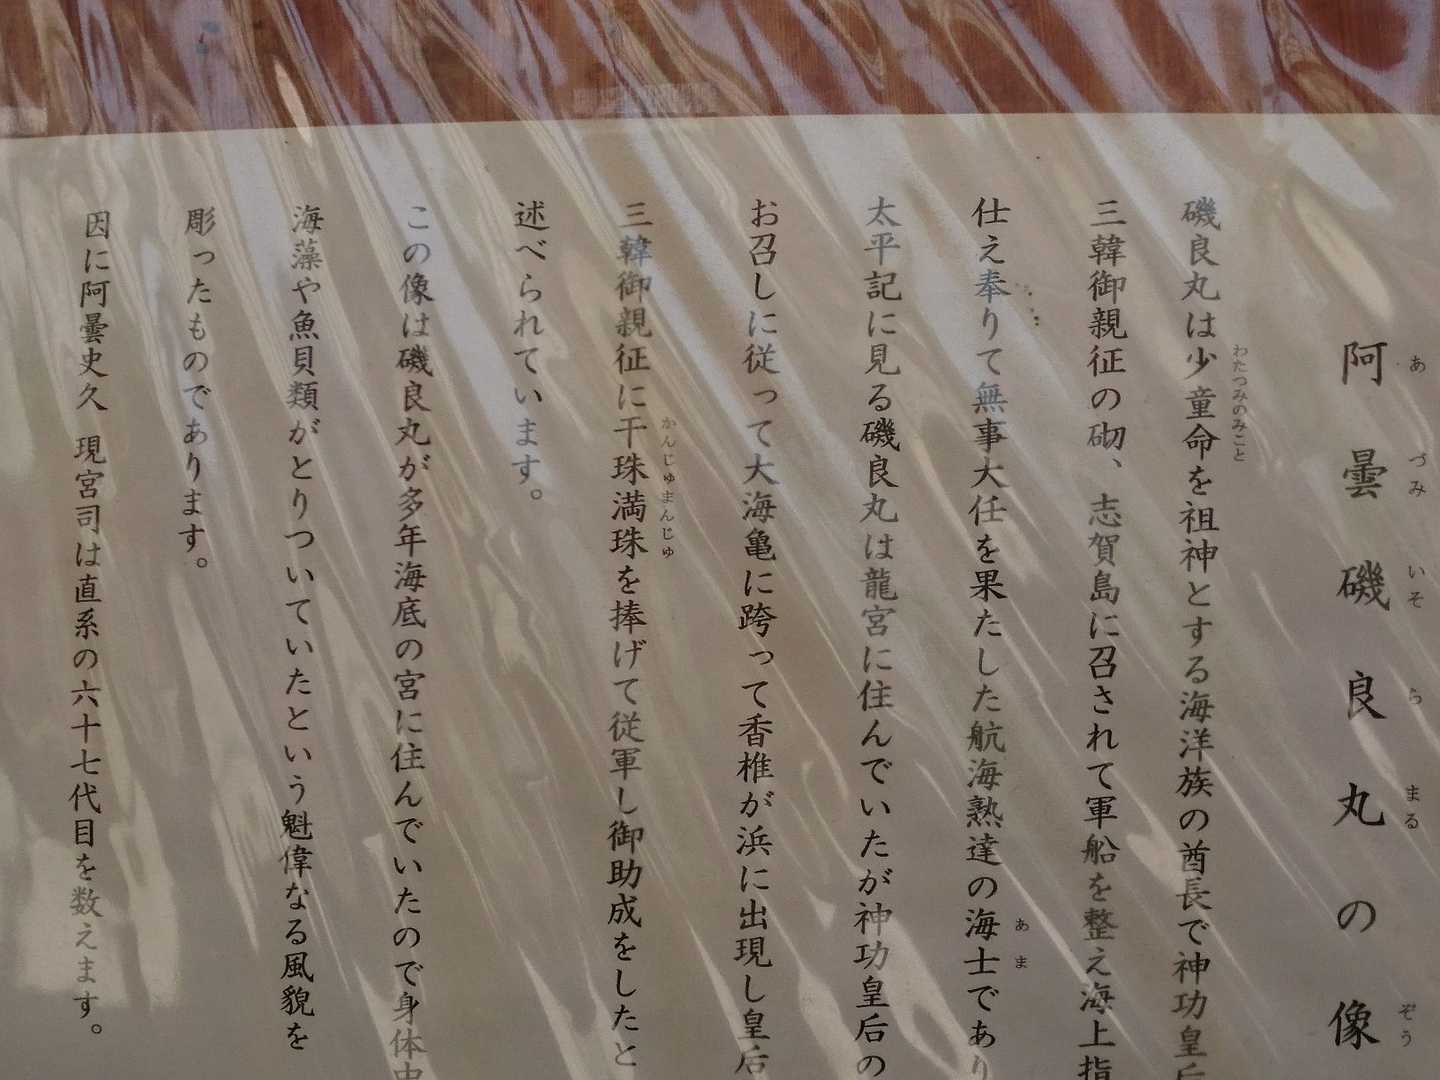 阿曇磯良丸の像
あづみいそらまるぞう
磯良丸は少童命を祖神とする海洋族の酋長で神功皇后
わたつみのみこと
三韓御親征の砌、志賀島に召されて軍船を整え海上指
仕え奉りて無事大任を果たした航海熟達の海士であり
あま
太平記に見る磯良丸は龍宮に住んでいたが神功皇后の
お召しに従って大海亀に跨って香椎が浜に出現し皇后
三韓御親征に干珠満珠を捧げて従軍し御助成をしたと
かんじゅまんじゅ
述べられています。
この像は磯良丸が多年海底の宮に住んでいたので身体中
海藻や魚貝類がとりついていたという魁偉なる風貌を
彫ったものであります。
因に阿曇史久 現宮司は直系の六十七代目を数えます。